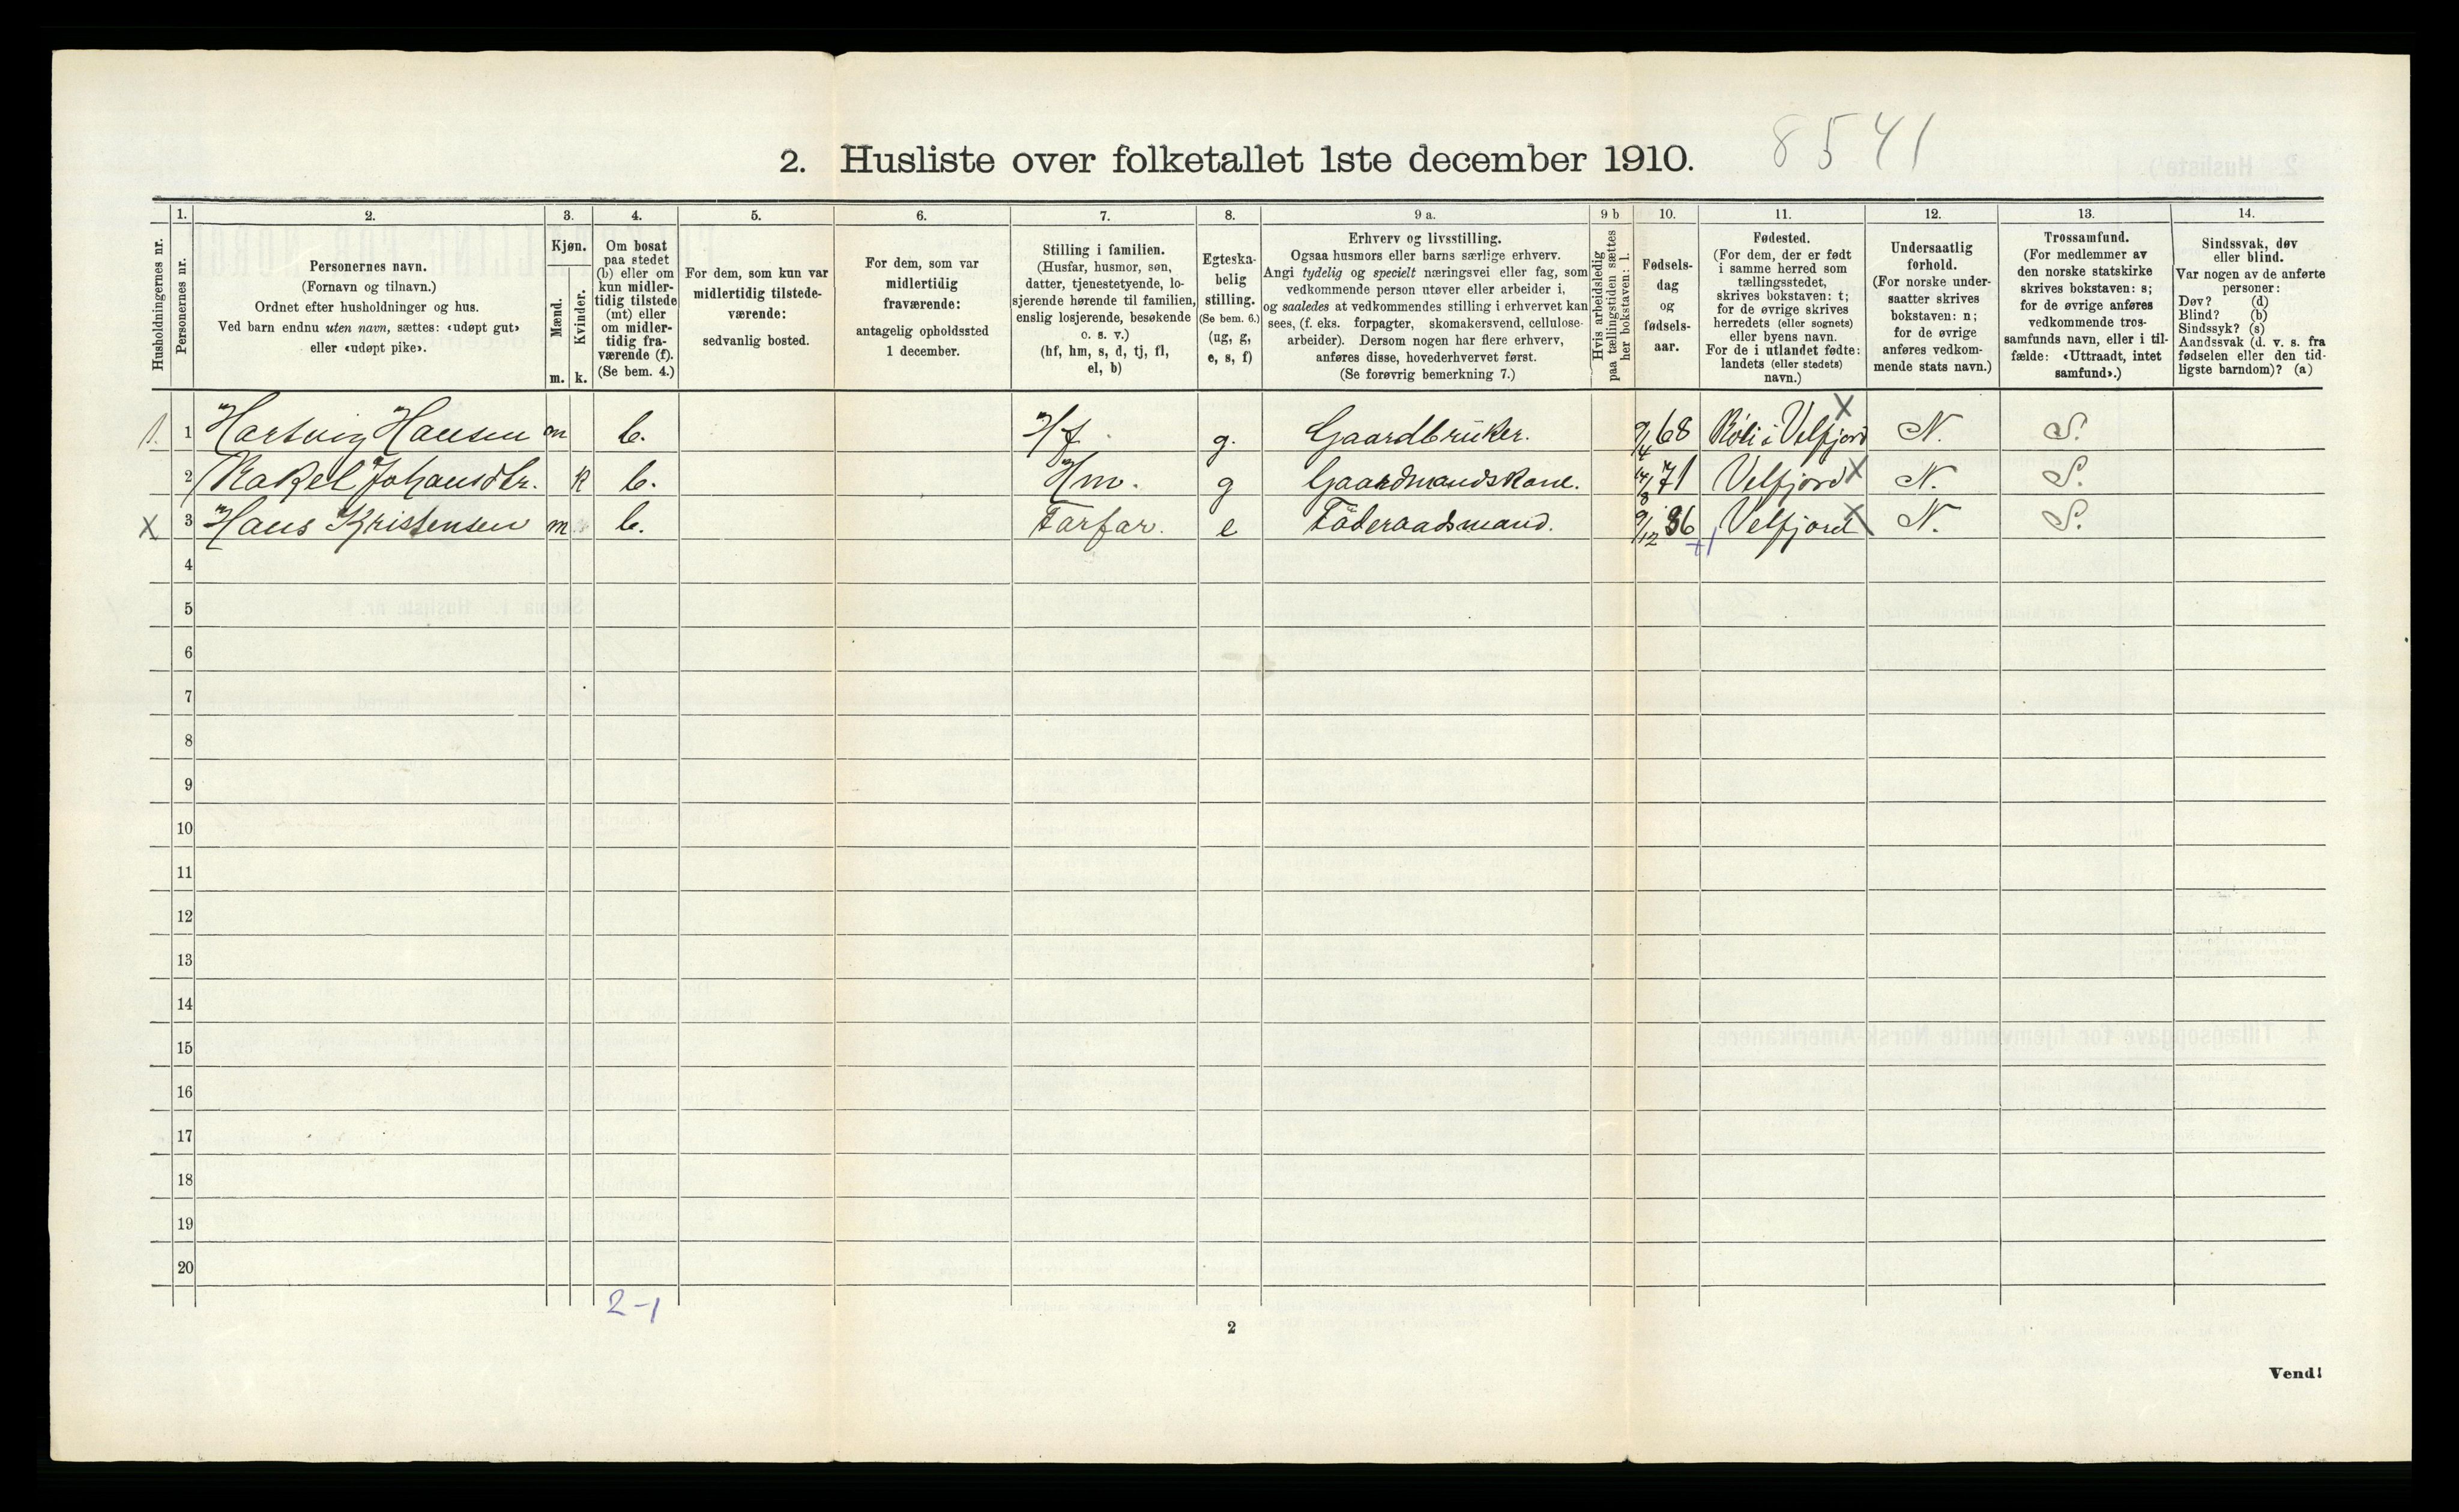 8541
2. Husliste over folketallet 1ste december 1910.
Husholdningernes nr.
1. Personernes nr.
2.
Personernes navn.
(Fornavn og tilnavn.)
Ordnet efter husholdninger og hus.
Ved barn endnu uten navn, sættes: «udøpt gut»
eller «udøpt pike».
3.
Kjøn.
Mænd. Kvinder.
m. k.
4.
Om bosat
paa stedet
(b) eller om
kun midler-
tidig tilstede
(mt) eller
om midler-
tidig fra-
værende (f).
(Se bem. 4.)
5.
For dem, som kun var
midlertidig tilstede-
værende:
sedvanlig bosted.
6.
For dem, som var
midlertidig
fraværende:
antagelig opholdssted
1 december.
7.
Stilling i familien.
(Husfar, husmor, søn,
datter, tjenestetyende, lo-
sjerende hørende til familien,
enslig losjerende, besøkende
o. s. v.)
(hf, hm, s, d, tj, fl,
el, b)
8.
Egteska-
belig
stilling.
(Se bem. 6.)
(ug, g,
e, s, f)
9 a.
Erhverv og livsstilling.
Ogsaa husmors eller barns særlige erhverv.
Angi tydelig og specielt næringsvei eller fag, som
vedkommende person utøver eller arbeider i,
og saaledes at vedkommendes stilling i erhvervet kan
sees, (f. eks. forpagter, skomakersvend, cellulose-
arbeider). Dersom nogen har flere erhverv,
anføres disse, hovederhvervet først.
(Se forøvrig bemerkning 7.)
9 b
Hvis arbeidsledig
paa tællingstiden sættes
her bokstaven: l.
10.
Fødsels-
dag
og
fødsels-
aar.
11.
Fødested.
(For dem, der er født
i samme herred som
tællingsstedet,
skrives bokstaven: t;
for de øvrige skrives
herredets (eller sognets)
eller byens navn.
For de i utlandet fødte:
landets (eller stedets)
navn.)
12.
Undersaatlig
forhold.
(For norske under-
saatter skrives
bokstaven: n;
for de øvrige
anføres vedkom-
mende stats navn.)
13.
Trossamfund.
(For medlemmer av
den norske statskirke
skrives bokstaven: s;
for de øvrige anføres
vedkommende tros-
samfunds navn, eller i til-
fælde: «Uttraadt, intet
samfund».)
14.
Sindssvak, døv
eller blind.
Var nogen av de anførte
personer:
Døv? (d)
Blind? (b)
Sindssyk? (s)
Aandssvak (d. v. s. fra
fødselen eller den tid-
ligste barndom)? (a)
1. 1 Hartvig Hansen m b. Hf. g. Gaardbruker. 9/4 68 i Velfjord X N. S.
2 Rakel Johansdtr. k b. Hm. g Gaardmandskone. 14/8 71 Velfjord X N. S.
X 3 Hans Kristensen m b. Farfar. e Föderaadsmand. 9/12 36 +1 Velfjord X N. S.
4
5
6
7
8
9
10
11
12
13
14
15
16
17
18
19
20
2-1
2
Vend!